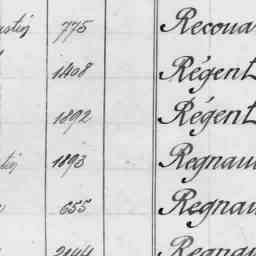 775 Recoua
1408 Régent
1892 Régent
1893 Regnau
655 Regnau
2144 Regnau